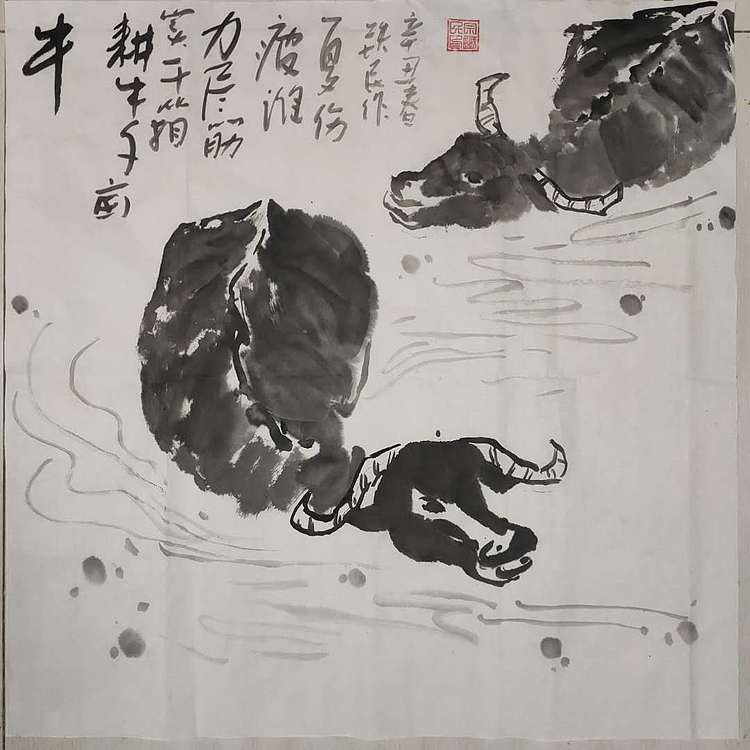 牛
耕牛千亩
实千箱
力尽筋
疲谁
复伤
辛丑春
民作